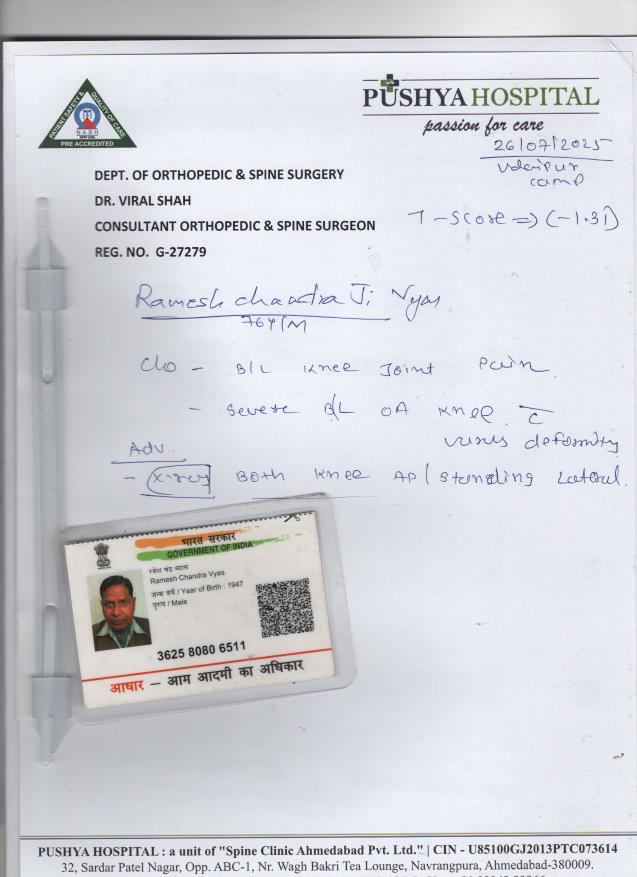 PATIENT SAFETY & QUALITY OF CARE
NABH
PRE ACCREDITED
PUSHYA HOSPITAL
passion for care
26/07/2025
Udaipur
camp
DEPT. OF ORTHOPEDIC & SPINE SURGERY
DR. VIRAL SHAH
CONSULTANT ORTHOPEDIC & SPINE SURGEON
REG. NO. G-27279
T-Score => (-1.31)
Ramesh chandra Ji Vyas
76Y/M
C/o - B/L Knee Joint Pain
- Severe B/L OA Knee c̅
varus deformity
Adv.
- X-ray Both Knee AP/Standing Lateral.
भारत सरकार
GOVERNMENT OF INDIA
रमेश चंद्र व्यास
Ramesh Chandra Vyas
जन्म वर्ष / Year of Birth : 1947
पुरुष / Male
3625 8080 6511
आधार – आम आदमी का अधिकार
PUSHYA HOSPITAL : a unit of "Spine Clinic Ahmedabad Pvt. Ltd." | CIN - U85100GJ2013PTC073614
32, Sardar Patel Nagar, Opp. ABC-1, Nr. Wagh Bakri Tea Lounge, Navrangpura, Ahmedabad-380009.